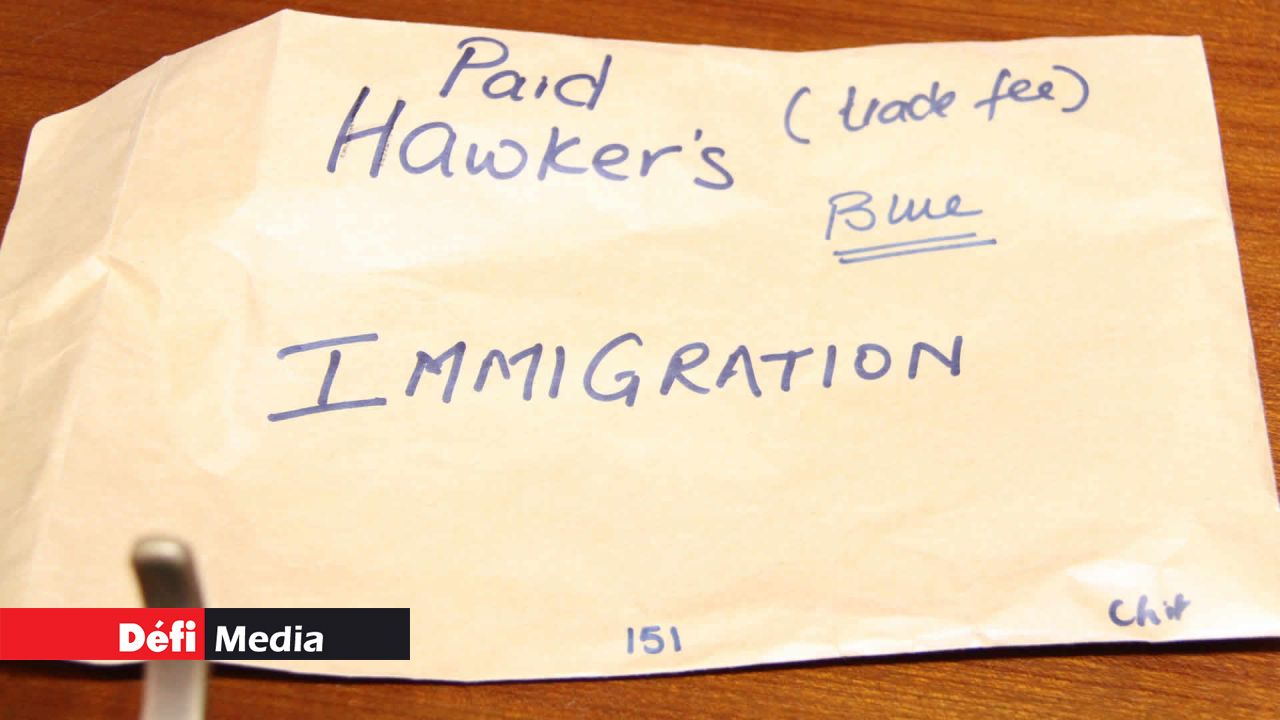 Paid
Hawker's
(trade fee)
Blue
IMMIGRATION
151
Chit
Défi Media